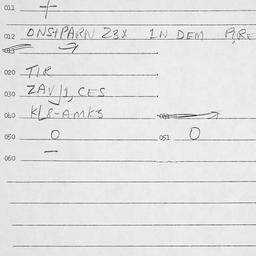 011 +
012 ONSTPARN Z3X IN DEM
020 TIR
030 ZAV/1, CES
040 KL8-AMKS
050 0 051 0
060 —